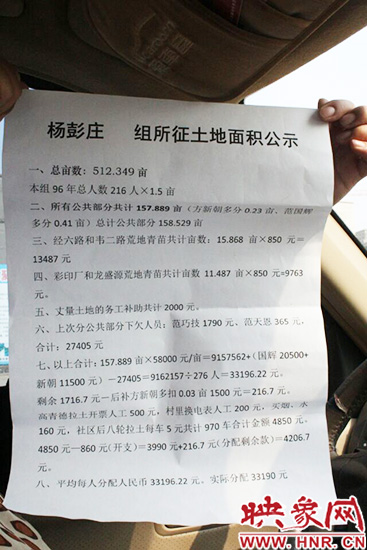 杨彭庄 组所征土地面积公示
一、总亩数：512.349 亩
本组 96 年总人数 216 人×1.5 亩
二、所有公共部分共计 157.889 亩（方新朝多分 0.23 亩、范国辉
多分 0.41 亩）总计公共部分 158.529 亩
三、经六路和韦二路荒地青苗共计亩数：15.868 亩×850 元=
13487 元
四、彩印厂和龙盛源荒地青苗共计亩数 11.487 亩×850 元=9763
元。
五、丈量土地的务工补助共计 2000 元。
六、上次分公共部分下欠人员：范巧技 1790 元、范天恩 365 元，
合计：27405 元
七、以上合计：157.889 亩×58000 元/亩=9157562+（国辉 20500+
新朝 11500 元）－27405 元=9162157÷276 人=33196.22 元。
剩余 1716.7 元－后补方新朝多扣 0.03 亩 1500 元=216.7 元。
高青德拉土开票人工 500 元，村里换电表人工 200 元，买烟、水
160 元，社区后八轮拉土每车 5 元共计 970 车合计金额 4850 元。
4850 元－860 元（开支）=3990 元+216.7 元（分配剩余款）=4206.7
元。
八、平均每人分配人民币 33196.22 元。实际分配 33190 元
映象网
WWW.HNR.CN